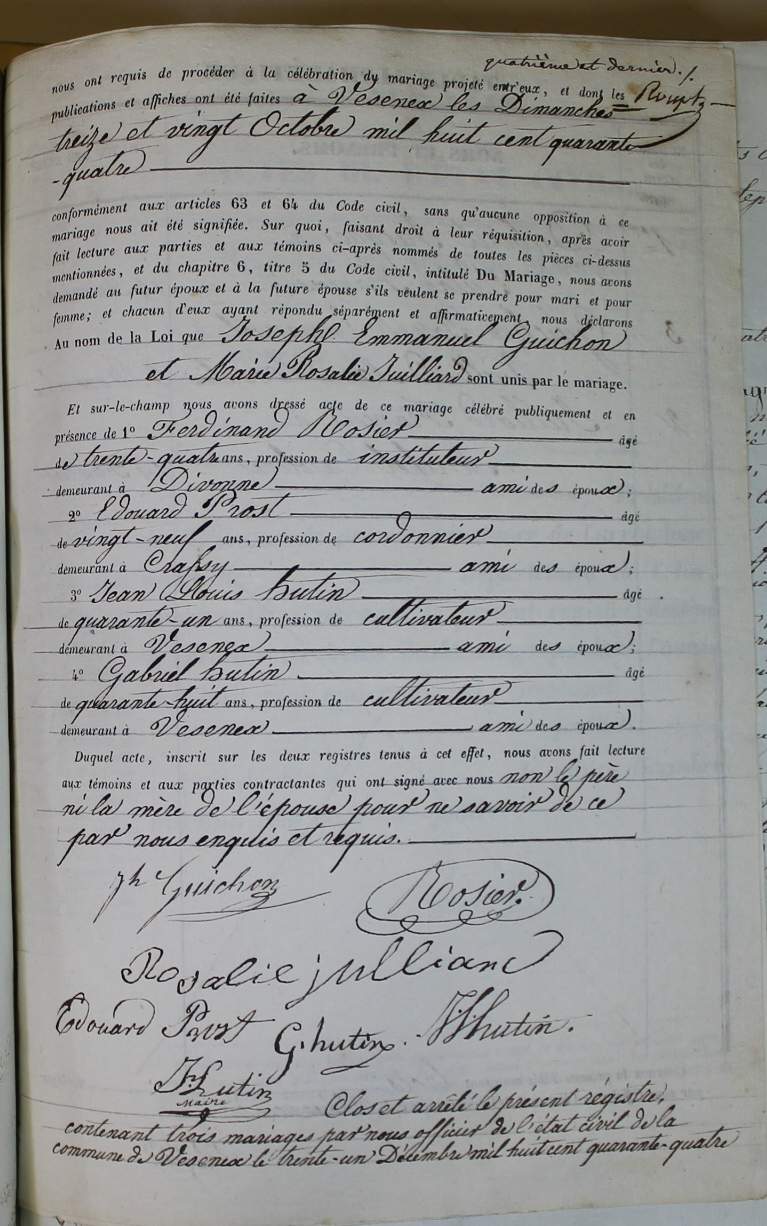 quatrième et dernier ./.
nous ont requis de procéder à la célébration du mariage projeté entr'eux, et dont les
publications et affiches ont été faites à Vesenex les Dimanches
treize et vingt Octobre mil huit cent quarante
-quatre
conformément aux articles 63 et 64 du Code civil, sans qu'aucune opposition à ce
mariage nous ait été signifiée. Sur quoi, faisant droit à leur réquisition, après avoir
fait lecture aux parties et aux témoins ci-après nommés de toutes les pièces ci-dessus
mentionnées, et du chapitre 6, titre 5 du Code civil, intitulé Du Mariage, nous avons
demandé au futur époux et à la future épouse s'ils veulent se prendre pour mari et pour
femme; et chacun d'eux ayant répondu séparément et affirmativement, nous déclarons
Au nom de la Loi que Joseph Emmanuel Guichon
et Marie Rosalie Juilliard sont unis par le mariage.
Et sur-le-champ nous avons dressé acte de ce mariage célébré publiquement et en
présence de 1° Ferdinand Rosier âgé
de trente-quatre ans, profession de instituteur
demeurant à Divonne ami des époux;
2° Edouard Prost âgé
de vingt-neuf ans, profession de cordonnier
demeurant à Crassy ami des époux;
3° Jean Louis hutin âgé
de quarante-un ans, profession de cultivateur
demeurant à Vesenex ami des époux;
4° Gabriel hutin âgé
de quarante-huit ans, profession de cultivateur
demeurant à Vesenex ami des époux.
Duquel acte, inscrit sur les deux registres tenus à cet effet, nous avons fait lecture
aux témoins et aux parties contractantes qui ont signé avec nous non le père
ni la mère de l'épouse pour ne savoir de ce
par nous enquis et requis.
Jh Guichon
Rosier.
Rosalie jullianc
Edouard Prost G. hutin. JL hutin.
Hutin
Maire
Clos et arrêté le présent régistre,
contenant trois mariages par nous officier de l'état civil de la
commune de Vesenex le trente-un Décembre mil huit cent quarante-quatre